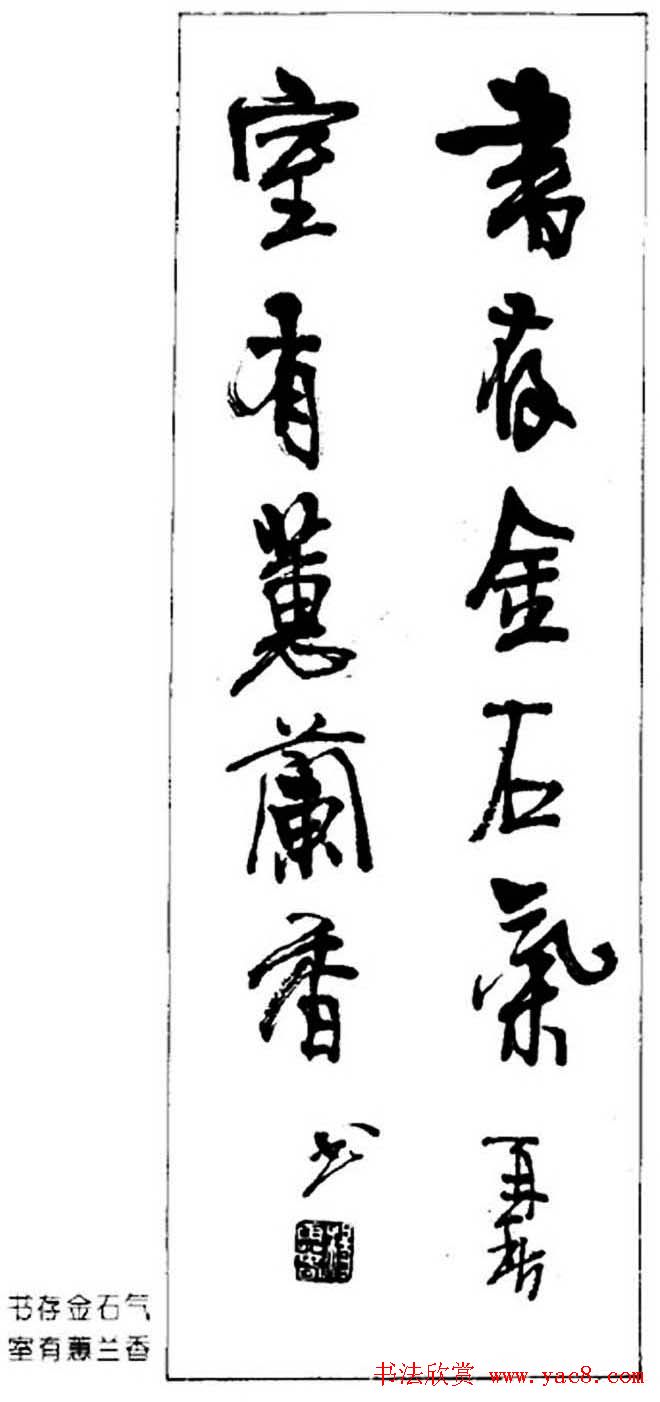 書存金石氣
室有蕙蘭香
书
书存金石气
室有蕙兰香
书法欣赏 www.yac8.com